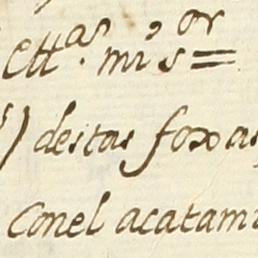 ett.as mi s.or =
) destas foxas
Conel acatam